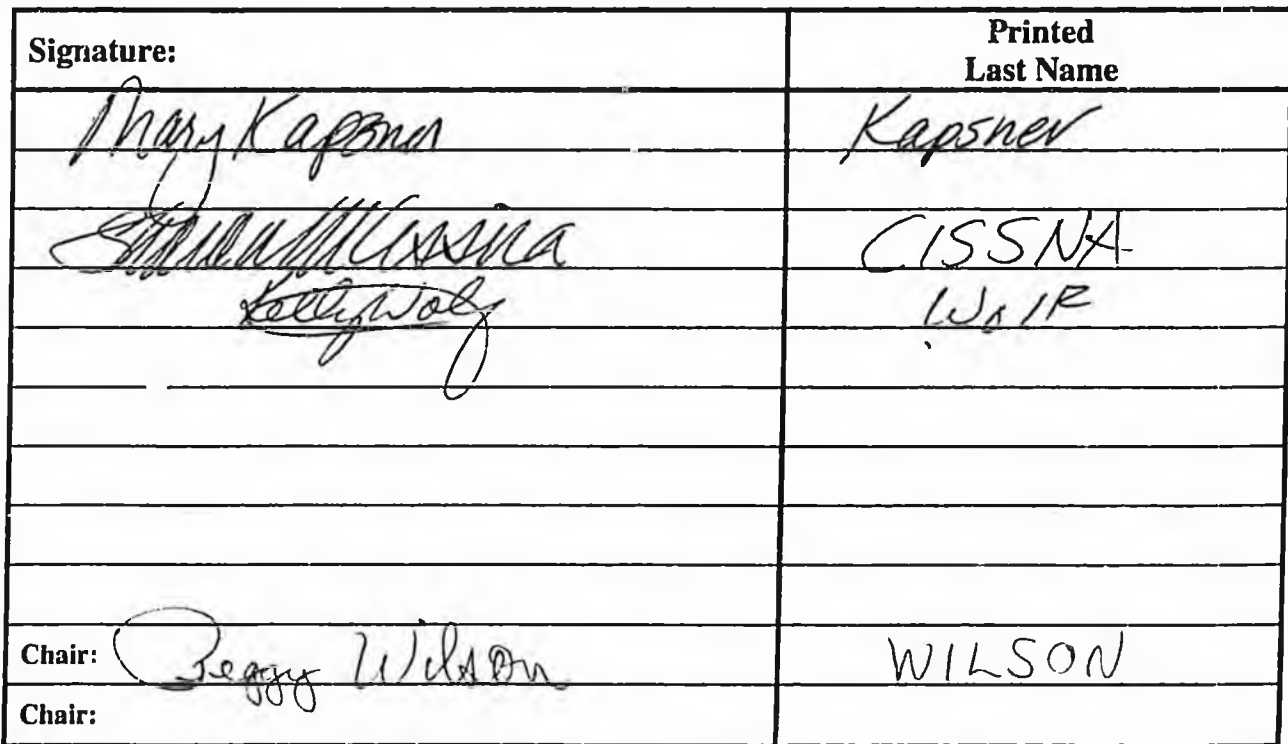 Signature: Printed
Last Name
Mary Kapsner Kapsner
Cissna CISSNA
Kelly Wolf
Chair: Peggy Wilson WILSON
Chair: